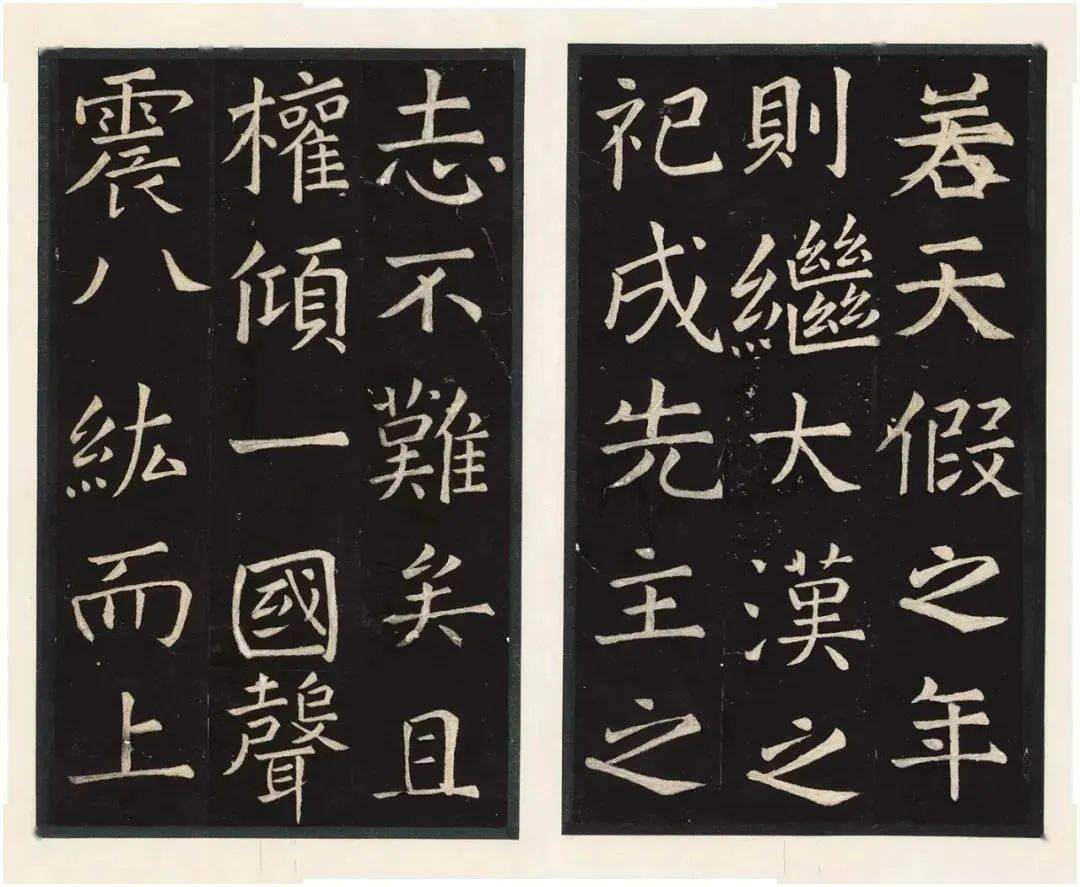 若天假之年
則繼大漢之
祀成先主之
志不難矣且
權傾一國聲
震八紘而上